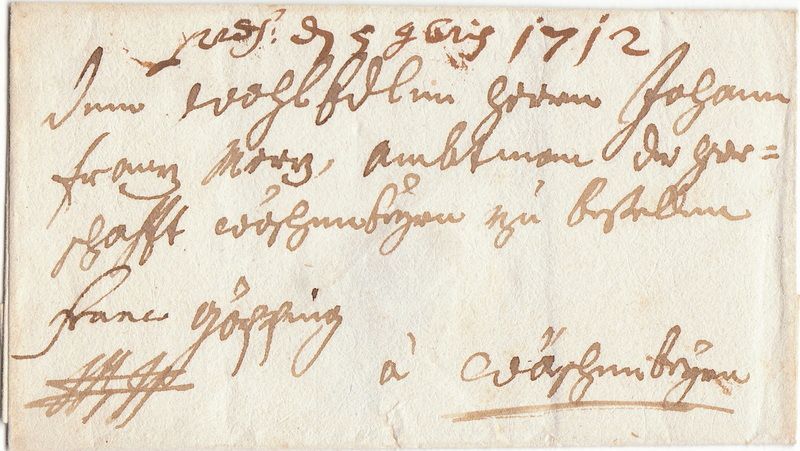 d 5 9bris 1712
dem wohl Edlen herrn Johann
frantz Merz, ambtman der herr=
schafft wöschenbeyrn zu bestellen
franc Göpping
à wöschenbeyrn